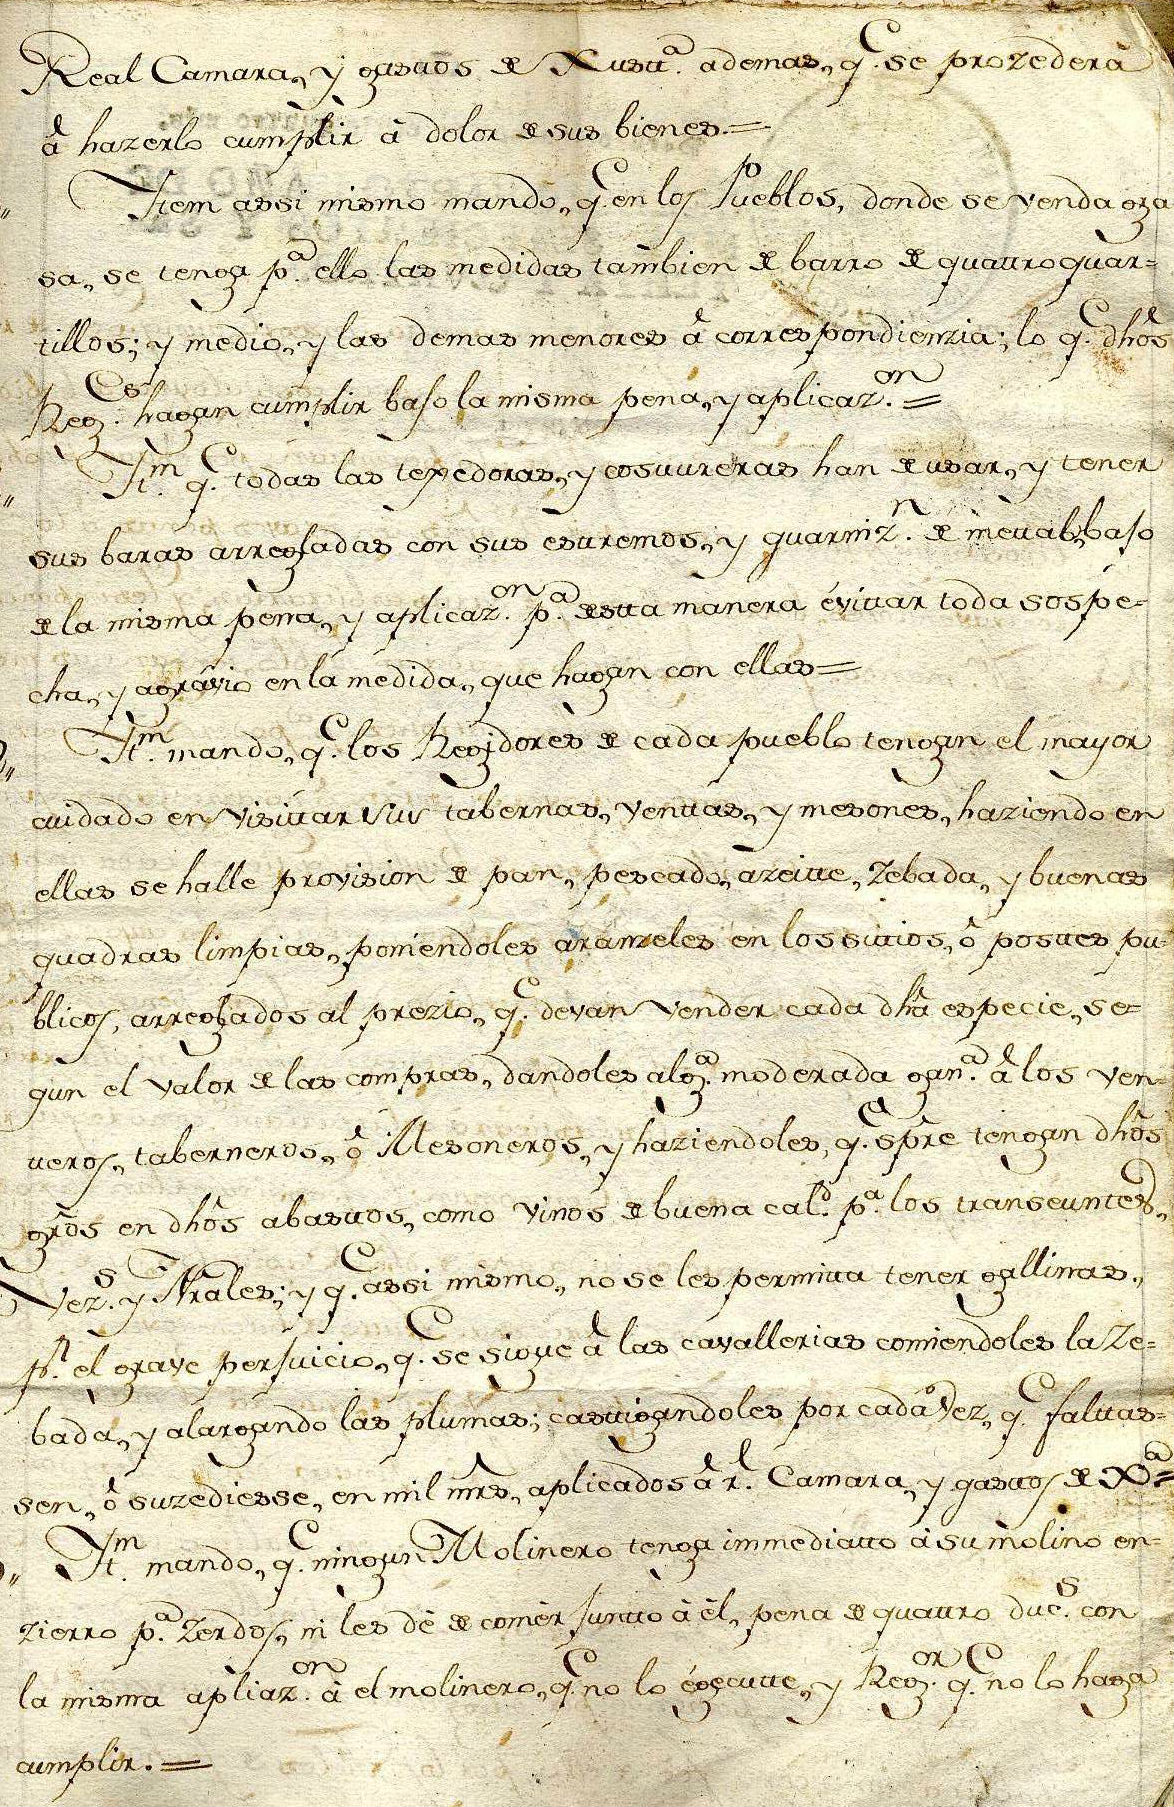 Real Camara, y gastos de Xustª. ademas, q.e se prozederà
â hazerlo cumplir à dolor de sus bienes.=
Item assi mismo mando, q.e en los Pueblos, donde se venda gra
sa, se tenga pª. ello las medidas tambien de barro de quatro quar=
tillos; y medio, y las demas menores â correspondienzia; lo q.e dhôs
Reg.es hagan cumplir bajo la misma pena, y aplicaz.on=
It.m q.e todas las texedoras, y costureras han de usar, y tener
sus baras arregladas con sus estremos, y guarniz.n de metal, bajo
de la misma pena, y aplicaz.on pª. desta manera évitar toda sospe=
cha, y agràvio en la medida, que hagan con ellas=
It.m mando, q.e los Regidores de cada pueblo tengan el mayor
cuidado en visitar sus tabernas, ventas, y mesones, haziendo en
ellas se halle provision de pan, pescado, azeite, zebada, y buenas
quadras limpias, poniendoles aranzeles en los sitios, ô postes pu=
blicos, arreglados al prezio, q.e devan vender cada dhâ especie, se=
gun el valor de las compras, dandoles algª. moderada ganª. â los ven=
teros, taberneros, ô Mesoneros, y haziendoles, q.e spre tengan dhôs
grôs en dhôs abastos, como vinos de buena cal.d pª. los transeuntes,
Vez.s y Nrales; y q.e assi mismo, no se les permita tener gallinas,
p.r el grave perjuicio, q.e se sigue â las cavallerias comiendoles la ze=
bada, y alargando las plumas; castigandoles por cada vez, q.e faltas=
sen, ô suzediesse, en mil mrs, aplicados â r.l Camara, y gastos de Xª=
It.m mando, q.e ningun Molinero tenga immediato à su molino en=
zierro pª. zerdos, ni les dè de comèr junto à èl, pena de quatro duc.s con
la misma apliaz.on à el molinero, q.e no lo égecute, y Reg.or q.e no lo haga
cumplir.=